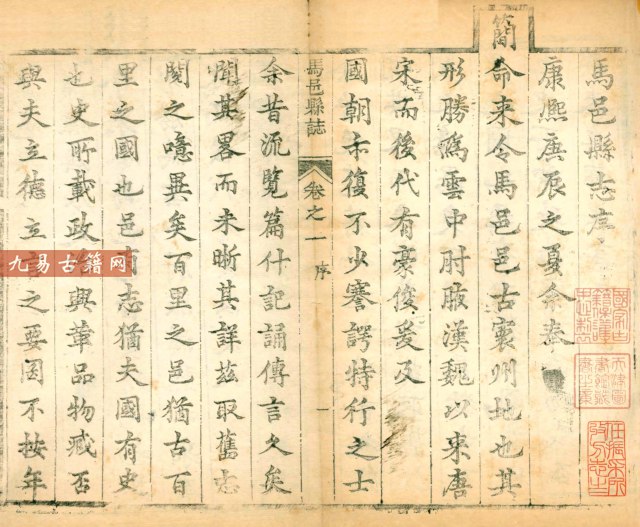 馬邑縣志序
康熈庚辰之夏余奉
簡命来令馬邑邑古寰州地也其
形勝為雲中肘腋漢魏以来唐
宋而後代有豪俊爰及
國朝亦復不少謇諤特行之士
馬邑縣誌 卷之一 序 一
余昔流覽篇什記誦傳言久矣
聞其畧而未晰其詳茲取舊志
閱之噫異矣百里之邑猶古百
里之國也邑有志猶夫國有史
也史所載政興革品物臧否
與夫立德立之要罔不按年
九易古籍网